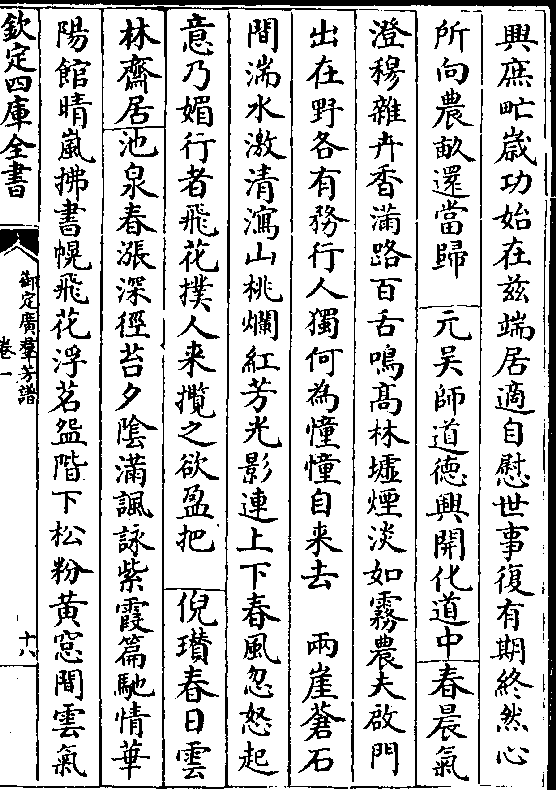 興庶甿歳功始在兹端居適自慰世事復有期終然心
所向農畝還當歸　元吳師道徳興開化道中春晨氣
澄穆雜卉香滿路百舌鳴髙林墟煙淡如霧農夫啟門
出在野各有務行人獨何為憧憧自来去　兩崖蒼石
間湍水激清瀉山桃爛紅芳光影連上下春風忽怒起
意乃媚行者飛花撲人来攬之欲盈把　倪瓚春日雲
林齋居池泉春漲深徑苔夕隂滿諷詠紫霞篇馳情華
陽館晴嵐拂書幌飛花浮茗盌階下松粉黄窓間雲氣
欽定四庫全書
御定廣羣芳譜
卷一
十八